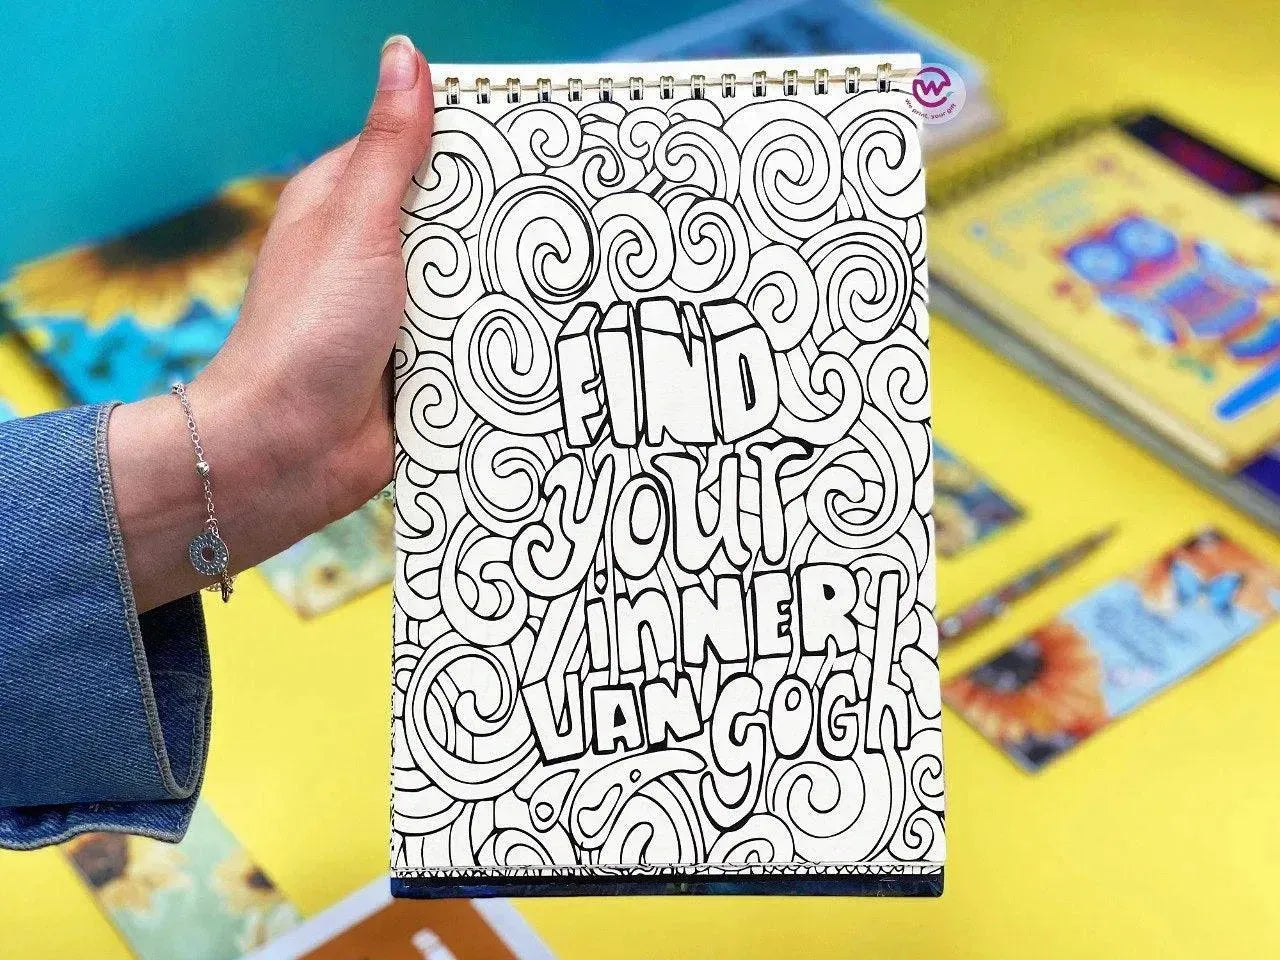 W
We print, your gift
FIND
your
inNER
VAN GOGh